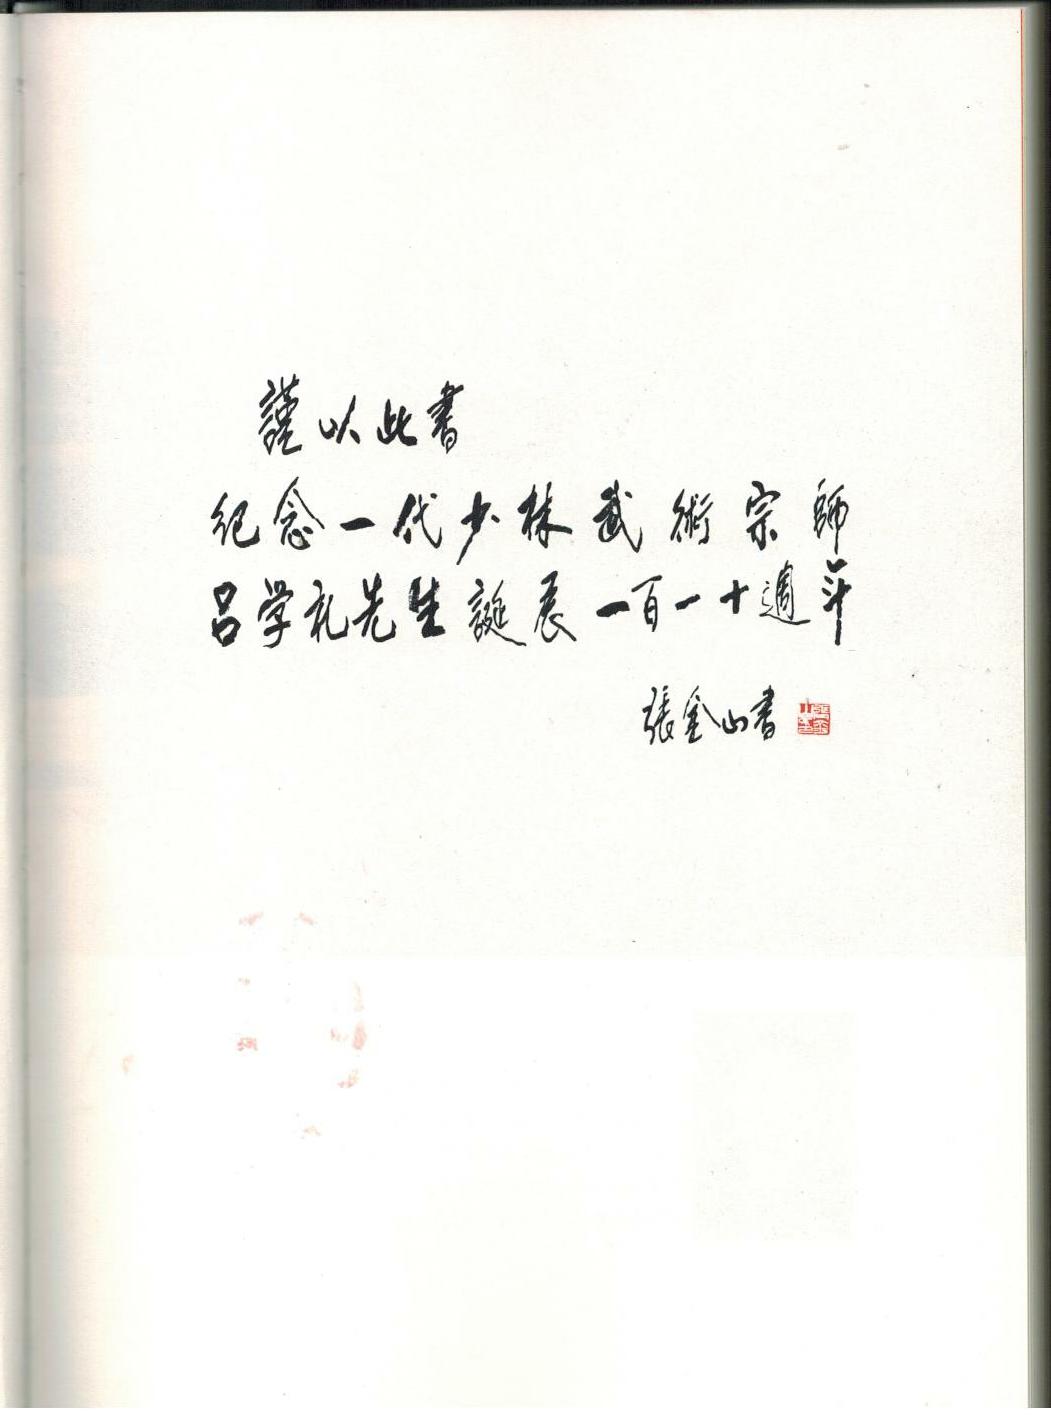 謹以此書
紀念一代少林武術宗師
吕学礼先生誕辰一百一十週年
張金山書